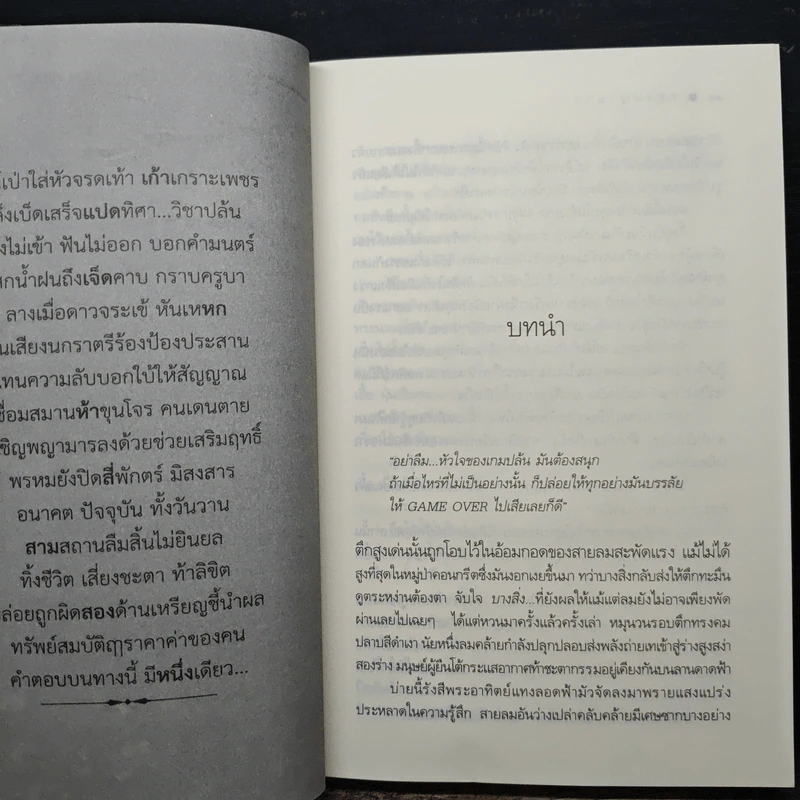 เป่าใส่หัวจรดเท้า เก้าเกราะเพชร
เบ็ดเสร็จแปดทิศา...วิชาปล้น
ไม่เข้า ฟันไม่ออก บอกคำมนตร์
น้ำฝนถึงเจ็ดคาบ กราบครูบา
ลางเมื่อดาวจระเข้ หันเหหก
เสียงนกราตรีร้องป้องประสาน
แทนความลับบอกใบ้ให้สัญญาณ
เชื่อมสมานห้าขุนโจร คนเดนตาย
เชิญพญามารลงด้วยช่วยเสริมฤทธิ์
พรหมยังปิดสี่พักตร์ มิสงสาร
อนาคต ปัจจุบัน ทั้งวันวาน
สามสถานลืมสิ้นไม่ยินยล
ทิ้งชีวิต เสี่ยงชะตา ท้าลิขิต
ปล่อยถูกผิดสองด้านเหรียญชี้นำผล
ทรัพย์สมบัติฤๅราคาค่าของคน
คำตอบบนทางนี้ มีหนึ่งเดียว...
บทนำ
"อย่าลืม...หัวใจของเกมปล้น มันต้องสนุก
ถ้าเมื่อไหร่ที่ไม่เป็นอย่างนั้น ก็ปล่อยให้ทุกอย่างมันบรรลัย
ให้ GAME OVER ไปเสียเลยก็ดี"
ตึกสูงเด่นนั้นถูกโอบไว้ในอ้อมกอดของสายลมสะพัดแรง แม้ไม่ได้
สูงที่สุดในหมู่ป่าคอนกรีตซึ่งมันงอกเงยขึ้นมา ทว่าบางสิ่งกลับส่งให้ตึกทะมึน
ดูตระหง่านต้องตา จับใจ บางสิ่ง...ที่ยังผลให้แม้แต่ลมยังไม่อาจเพียงพัด
ผ่านเลยไปเฉยๆ ได้แต่หวนมาครั้งแล้วครั้งเล่า หมุนวนรอบตึกทรงคม
ปลาบสีดำเงา นัยหนึ่งลมคล้ายกำลังปลุกปลอบส่งพลังถ่ายเทเข้าสู่ร่างสูงสง่า
สองร่าง มนุษย์ผู้ยืนโต้กระแสอากาศท้าชะตากรรมอยู่เคียงกันบนลานดาดฟ้า
บ่ายนี้รังสีพระอาทิตย์แทงลอดฟ้ามัวจัดลงมาพรายแสงแปร่ง
ประหลาดในความรู้สึก สายลมอันว่างเปล่าคลับคล้ายมีเศษซากบางอย่าง